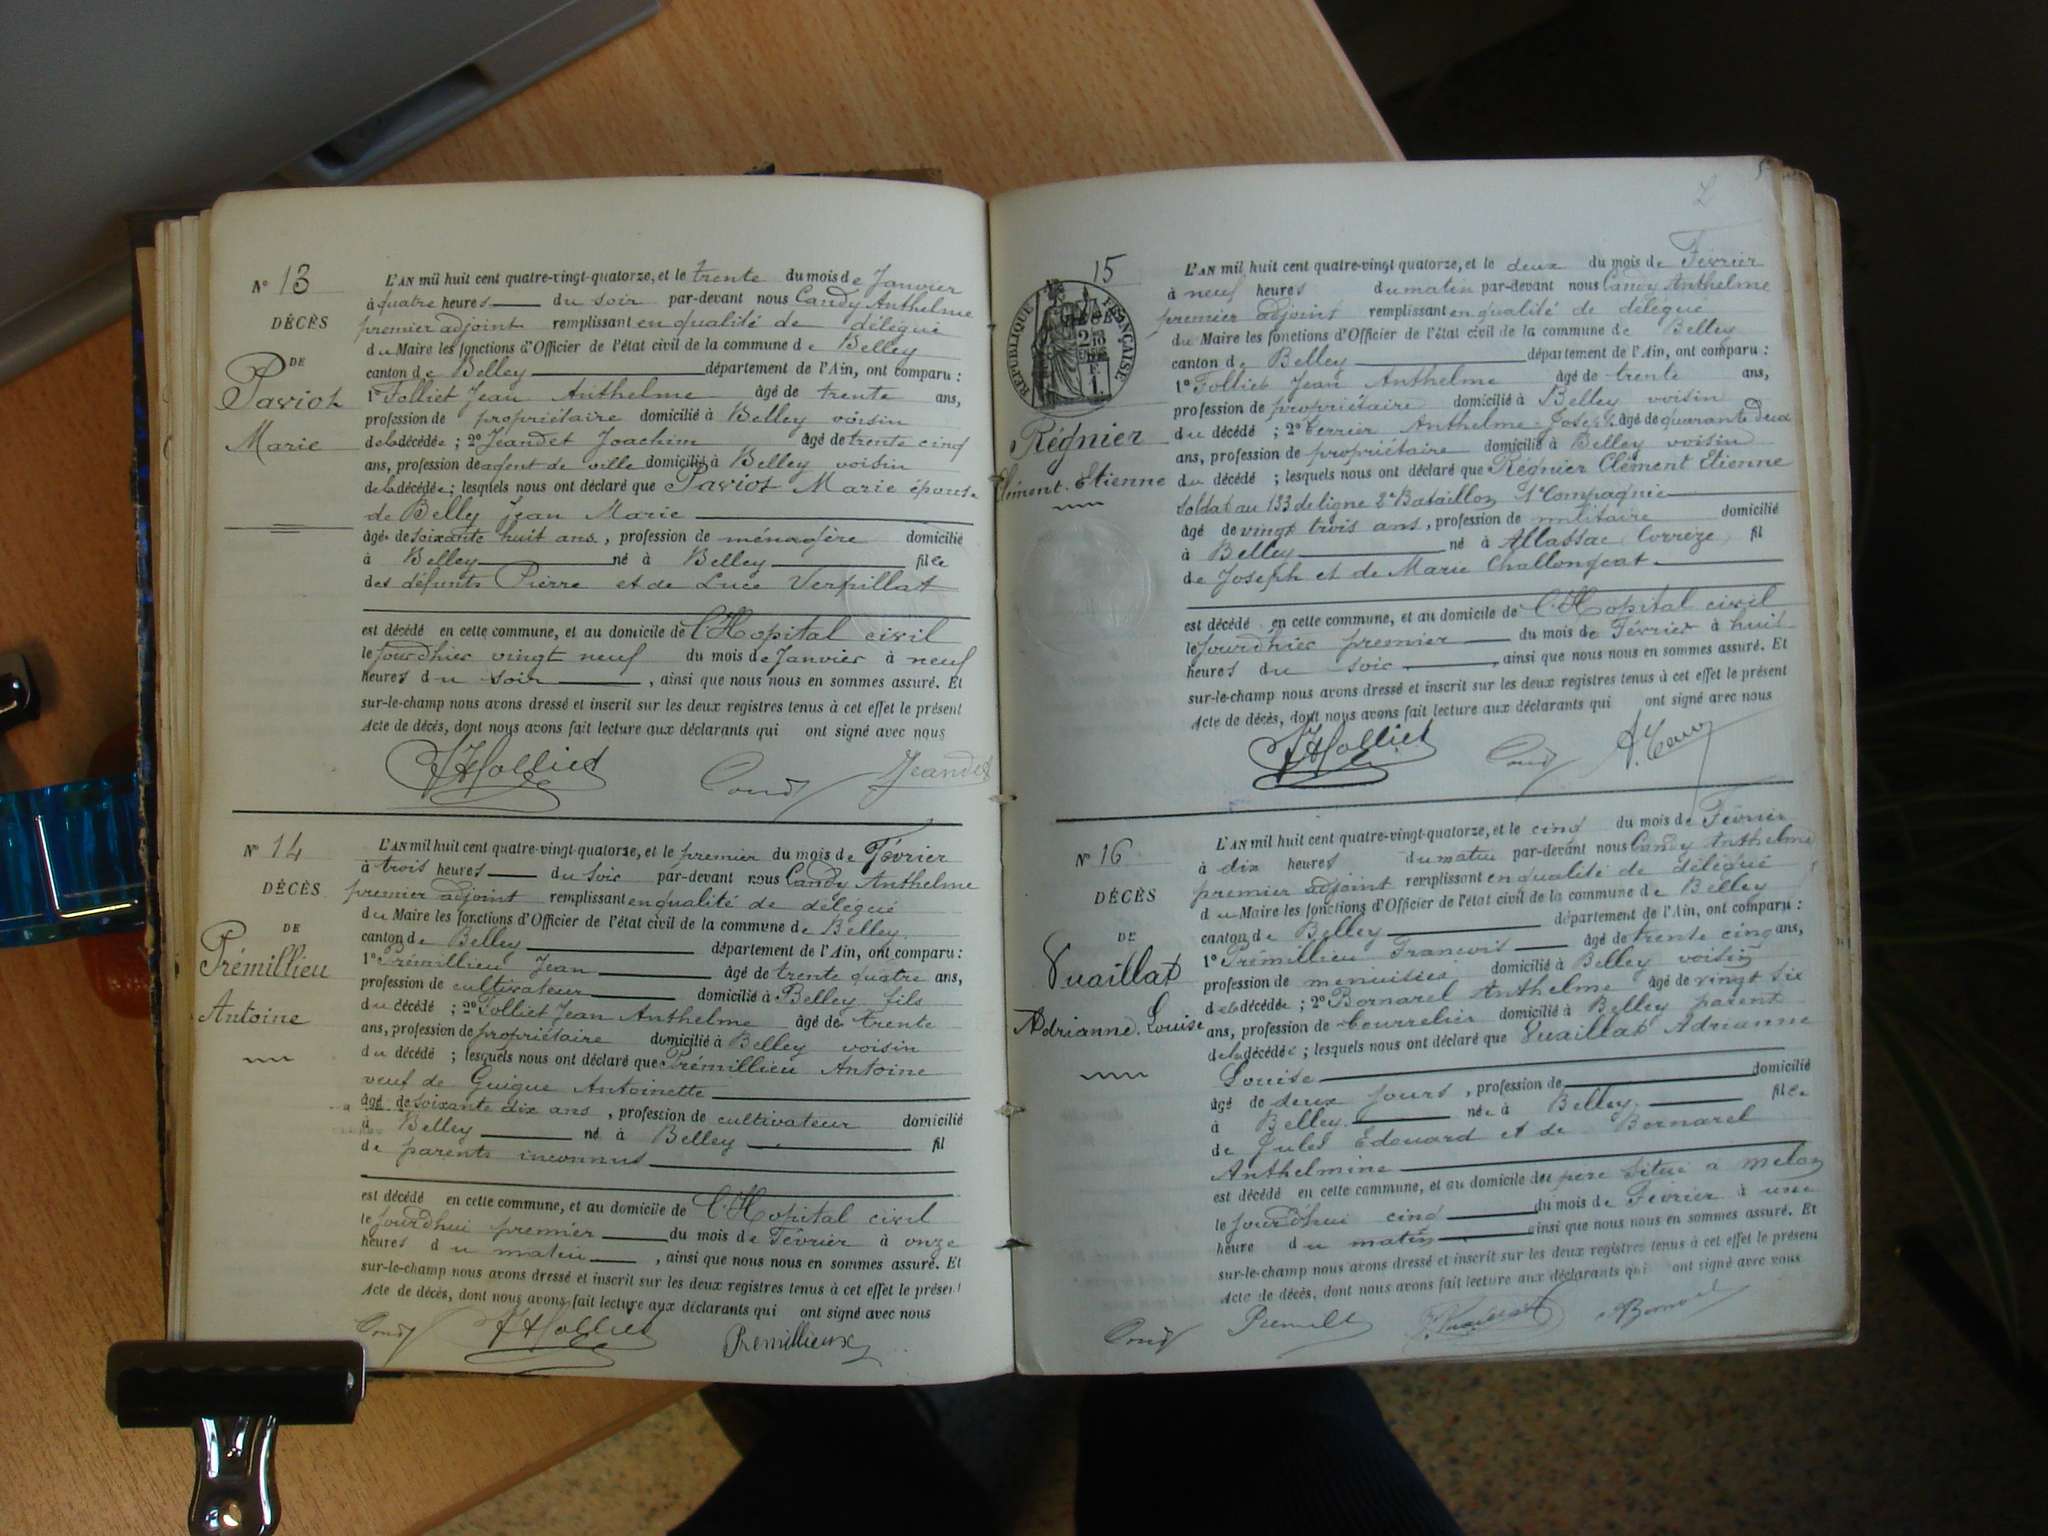 N° 13
DÉCÈS
DE
Paviot
Marie
L'AN mil huit cent quatre-vingt-quatorze, et le trente du mois de Janvier
à quatre heures du soir par-devant nous Candy Anthelme
premier adjoint remplissant en qualité de délégué
du Maire les fonctions d'Officier de l'état civil de la commune de Belley
canton de Belley département de l'Ain, ont comparu :
1° Folliet Jean Anthelme âgé de trente ans,
profession de propriétaire domicilié à Belley voisin
de la décédée ; 2° Jeandet Joachim âgé de trente cinq
ans, profession de agent de ville domicilié à Belley voisin
de la décédée ; lesquels nous ont déclaré que Paviot Marie épouse
de Belly Jean Marie
âgé de soixante huit ans, profession de ménagère domicilié
à Belley né à Belley fille
des défunts Pierre et de Luce Verpillat
est décédé en cette commune, et au domicile de l'Hopital civil
le jourdhier vingt neuf du mois de Janvier à neuf
heures du soir, ainsi que nous nous en sommes assuré. Et
sur-le-champ nous avons dressé et inscrit sur les deux registres tenus à cet effet le présent
Acte de décès, dont nous avons fait lecture aux déclarants qui ont signé avec nous
JAFolliet Candy Jeandet
N° 14
DÉCÈS
DE
Prémillieu
Antoine
L'AN mil huit cent quatre-vingt-quatorze, et le premier du mois de Février
à trois heures du soir par-devant nous Candy Anthelme
premier adjoint remplissant en qualité de délégué
du Maire les fonctions d'Officier de l'état civil de la commune de Belley
canton de Belley département de l'Ain, ont comparu :
1° Prémillieu Jean âgé de trente quatre ans,
profession de cultivateur domicilié à Belley fils
du décédé ; 2° Folliet Jean Anthelme âgé de trente
ans, profession de propriétaire domicilié à Belley voisin
du décédé ; lesquels nous ont déclaré que Prémillieu Antoine
veuf de Guigue Antoinette
âgé de soixante dix ans, profession de cultivateur domicilié
à Belley né à Belley fil
de parents inconnus
est décédé en cette commune, et au domicile de l'Hopital civil
le jourdhui premier du mois de Février à onze
heures du matin, ainsi que nous nous en sommes assuré. Et
sur-le-champ nous avons dressé et inscrit sur les deux registres tenus à cet effet le présent
Acte de décès, dont nous avons fait lecture aux déclarants qui ont signé avec nous
Candy JAFolliet Premillieux
15
RÉPUBLIQUE FRANÇAISE
Régnier
Clément Etienne
L'AN mil huit cent quatre-vingt quatorze, et le deux du mois de Février
à neuf heures du matin par-devant nous Candy Anthelme
premier adjoint remplissant en qualité de délégué
du Maire les fonctions d'Officier de l'état civil de la commune de Belley
canton de Belley département de l'Ain, ont comparu :
1° Folliet Jean Anthelme âgé de trente ans,
profession de propriétaire domicilié à Belley voisin
du décédé ; 2° Terrier Anthelme Joseph âgé de quarante deux
ans, profession de propriétaire domicilié à Belley voisin
du décédé ; lesquels nous ont déclaré que Régnier Clément Etienne
soldat au 133 de ligne 2e Bataillon 1e Compagnie
âgé de vingt trois ans, profession de militaire domicilié
à Belley né à Allassac Corrèze fil
de Joseph et de Marie
est décédé en cette commune, et au domicile de l'Hopital civil
le jourdhier premier du mois de Février à huit
heures du soir, ainsi que nous nous en sommes assuré. Et
sur-le-champ nous avons dressé et inscrit sur les deux registres tenus à cet effet le présent
Acte de décès, dont nous avons fait lecture aux déclarants qui ont signé avec nous
JAFolliet Candy
N° 16
DÉCÈS
DE
Vuaillat
Adrianne Louise
L'AN mil huit cent quatre-vingt-quatorze, et le cinq du mois de Février
à dix heures du matin par-devant nous Candy Anthelme
premier adjoint remplissant en qualité de délégué
du Maire les fonctions d'Officier de l'état civil de la commune de Belley
canton de Belley département de l'Ain, ont comparu :
1° Prémillieu Francois âgé de trente cinq ans,
profession de menuisier domicilié à Belley voisin
de la décédée ; 2° Bornarel Anthelme âgé de vingt six
ans, profession de bourrelier domicilié à Belley parent
de la décédée ; lesquels nous ont déclaré que Vuaillat Adrianne
Louise
âgé de deux jours, profession de domicilié
à Belley née à Belley fille
de Jules Edouard et de Bornarel
Anthelmine
est décédé en cette commune, et au domicile des père situé à
le jourdhui cinq du mois de Février à une
heure du matin ainsi que nous nous en sommes assuré. Et
sur-le-champ nous avons dressé et inscrit sur les deux registres tenus à cet effet le présent
Acte de décès, dont nous avons fait lecture aux déclarants qui ont signé avec nous
Candy